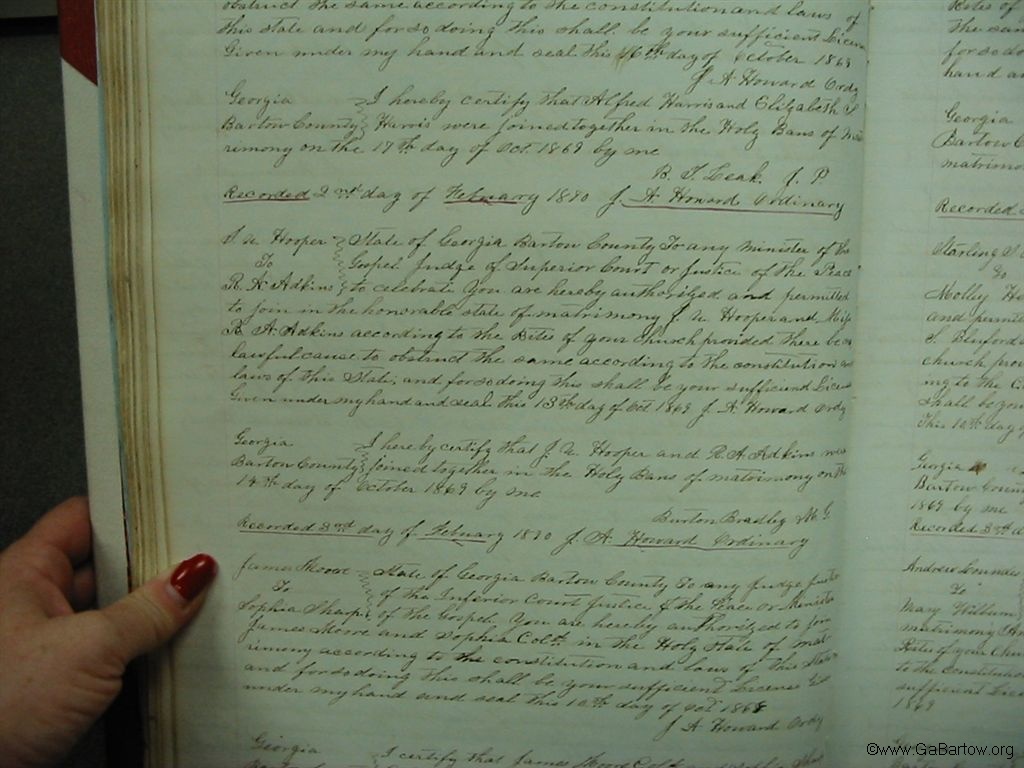 obstruct the same according to the constitution and laws of
this state and for so doing this shall be your sufficient Licens
Given under my hand and seal this 16th day of October 1869
J. A. Howard Ordy
Georgia
Bartow County
I hereby certify that Alfred Harris and Elizabeth
Harris were joined together in the Holy Bans of Mat
rimony on the 17th day of Oct. 1869 by me
B. T. Leak. J. P.
Recorded 2nd day of February 1870 J. A. Howard Ordinary
Hooper
To
R. A. Adkins
State of Georgia Bartow County To any minister of the
Gospel. Judge of Superior Court or Justice of the Peace
to celebrate You are hereby authorized and permitted
to join in the honorable state of matrimony J. Hooper and Miss
R. A. Adkins according to the Rites of your church provided there be no
lawful cause to obstruct the same according to the constitution and
laws of this State, and for so doing this shall be your sufficiend Licens
Given under my hand and seal this 13th day of Oct 1869 J. A. Howard Ordy
Georgia
Bartow County
I hereby certify that J. Hooper and R. A. Adkins were
joined together in the Holy Bans of matrimony on the
14th day of October 1869 by me
Burton Bradley M. G.
Recorded 3rd day of Febuary 1870 J. A. Howard Ordinary
James Moore
To
Sophia Sharp
State of Georgia Bartow County To any Judge Justice
of the Inferior Court Justice of the Peace or Minister
of the Gospel. You are hereby authorized to join
James Moore and Sophia Cold. in the Holy State of mat
rimony according to the constitution and laws of this State
and for so doing this shall be your sufficient License
under my hand and seal this 10th day of Oct 1868
J A Howard Ordy
Georgia
I certify that James Moore Cold and
Rites of
the sam
for so do
hand an
Georgia
Bartow C
matrimo
Recorded
Starling
To
Molley
and permit
Bluford
church prov
ing to the C
shall be you
This 10th day
Georgia
Bartow Coun
1869 by me
Recorded 3rd d
Andrew Lounds
To
Mary William
matrimony
Rites of your Chur
to the Constitution
sufficient Lice
1869
©www.GaBartow.org